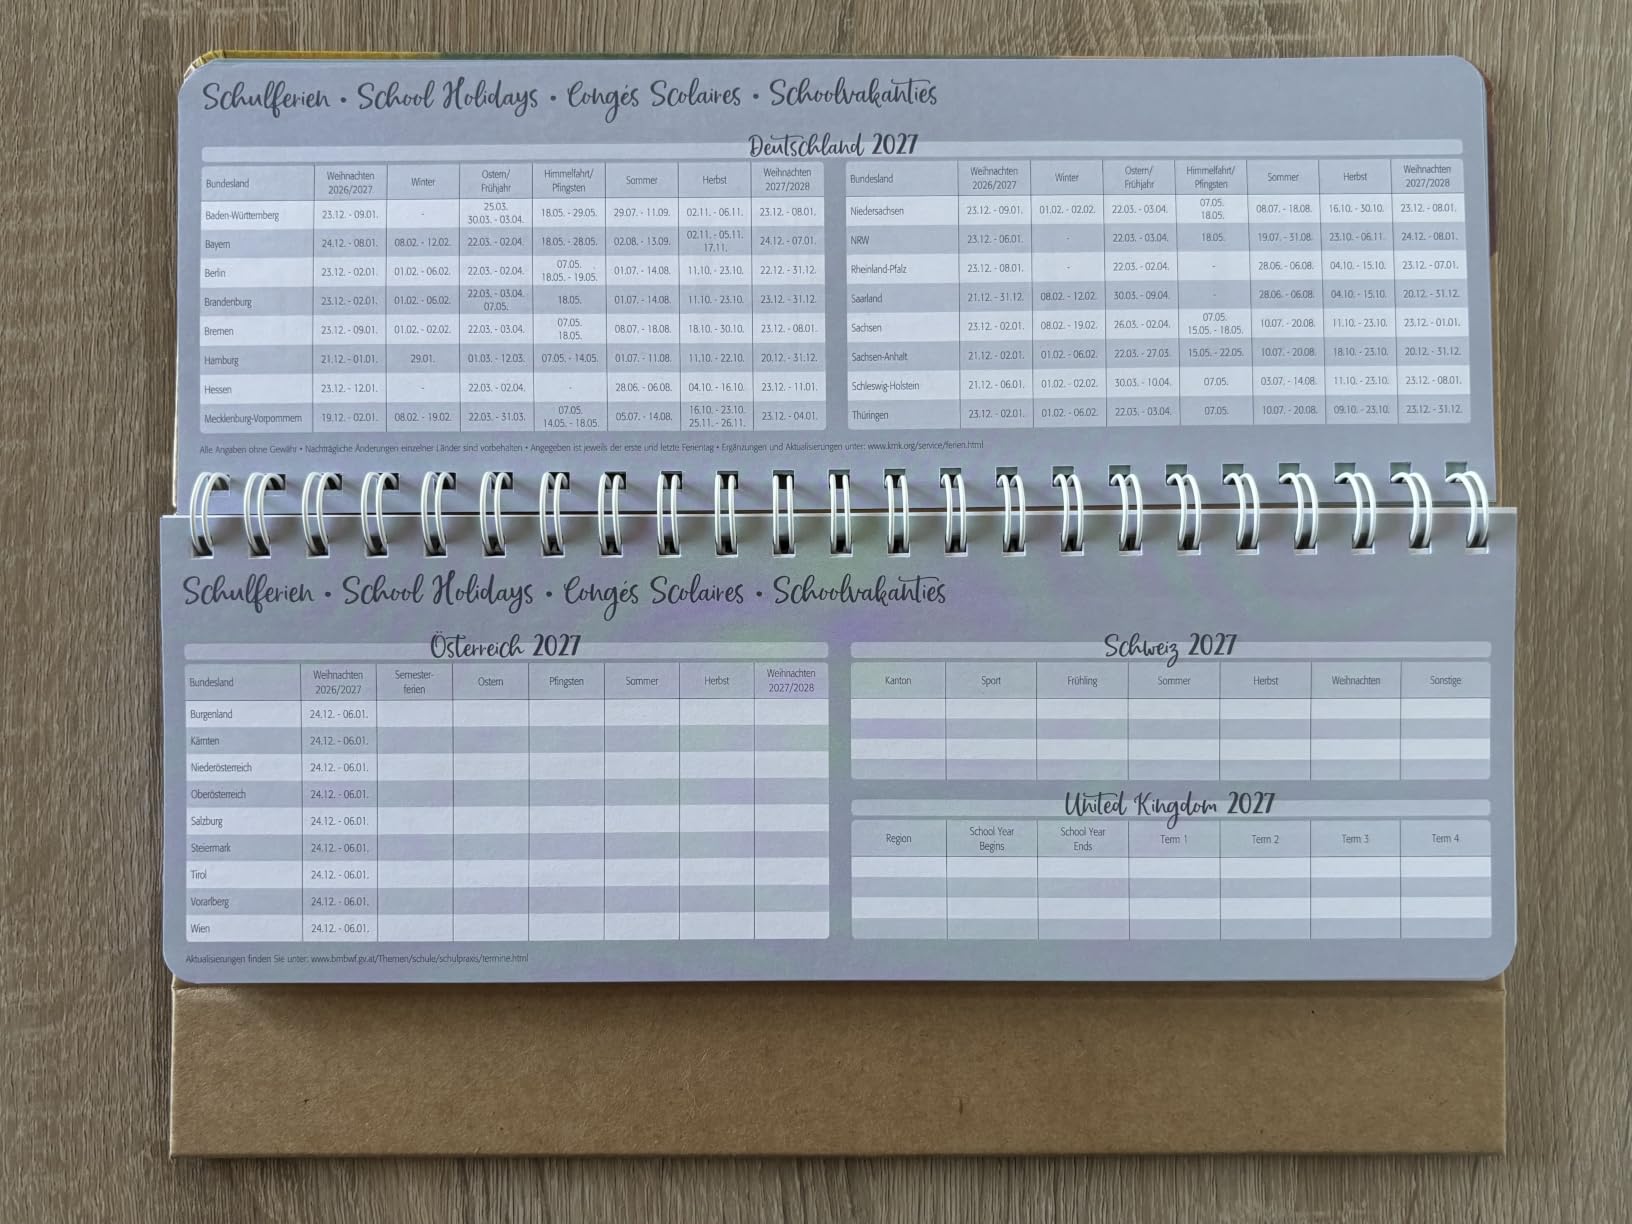 Schulferien • School Holidays • Congés Scolaires • Schoolvakanties
Deutschland 2027
Bundesland Weihnachten 2026/2027 Winter Ostern/ Frühjahr Himmelfahrt/ Pfingsten Sommer Herbst Weihnachten 2027/2028
Baden-Württemberg 23.12. - 09.01. - 25.03. 30.03. - 03.04. 18.05. - 29.05. 29.07. - 11.09. 02.11. - 06.11. 23.12. - 08.01.
Bayern 24.12. - 08.01. 08.02. - 12.02. 22.03. - 02.04. 18.05. - 28.05. 02.08. - 13.09. 02.11. - 05.11. 17.11. 24.12. - 07.01.
Berlin 23.12. - 02.01. 01.02. - 06.02. 22.03. - 02.04. 07.05. 18.05. - 19.05. 01.07. - 14.08. 11.10. - 23.10. 22.12. - 31.12.
Brandenburg 23.12. - 02.01. 01.02. - 06.02. 22.03. - 03.04. 07.05. 18.05. 01.07. - 14.08. 11.10. - 23.10. 23.12. - 31.12.
Bremen 23.12. - 09.01. 01.02. - 02.02. 22.03. - 03.04. 07.05. 18.05. 08.07. - 18.08. 18.10. - 30.10. 23.12. - 08.01.
Hamburg 21.12. - 01.01. 29.01. 01.03. - 12.03. 07.05. - 14.05. 01.07. - 11.08. 11.10. - 22.10. 20.12. - 31.12.
Hessen 23.12. - 12.01. - 22.03. - 02.04. - 28.06. - 06.08. 04.10. - 16.10. 23.12. - 11.01.
Mecklenburg-Vorpommern 19.12. - 02.01. 08.02. - 19.02. 22.03. - 31.03. 07.05. 14.05. - 18.05. 05.07. - 14.08. 16.10. - 23.10. 25.11. - 26.11. 23.12. - 04.01.
Bundesland Weihnachten 2026/2027 Winter Ostern/ Frühjahr Himmelfahrt/ Pfingsten Sommer Herbst Weihnachten 2027/2028
Niedersachsen 23.12. - 09.01. 01.02. - 02.02. 22.03. - 03.04. 07.05. 18.05. 08.07. - 18.08. 16.10. - 30.10. 23.12. - 08.01.
NRW 23.12. - 06.01. - 22.03. - 03.04. 18.05. 19.07. - 31.08. 23.10. - 06.11. 24.12. - 08.01.
Rheinland-Pfalz 23.12. - 08.01. - 22.03. - 02.04. - 28.06. - 06.08. 04.10. - 15.10. 23.12. - 07.01.
Saarland 21.12. - 31.12. 08.02. - 12.02. 30.03. - 09.04. - 28.06. - 06.08. 04.10. - 15.10. 20.12. - 31.12.
Sachsen 23.12. - 02.01. 08.02. - 19.02. 26.03. - 02.04. 07.05. 15.05. - 18.05. 10.07. - 20.08. 11.10. - 23.10. 23.12. - 01.01.
Sachsen-Anhalt 21.12. - 02.01. 01.02. - 06.02. 22.03. - 27.03. 15.05. - 22.05. 10.07. - 20.08. 18.10. - 23.10. 20.12. - 31.12.
Schleswig-Holstein 21.12. - 06.01. 01.02. - 02.02. 30.03. - 10.04. 07.05. 03.07. - 14.08. 11.10. - 23.10. 23.12. - 08.01.
Thüringen 23.12. - 02.01. 01.02. - 06.02. 22.03. - 03.04. 07.05. 10.07. - 20.08. 09.10. - 23.10. 23.12. - 31.12.
Alle Angaben ohne Gewähr • Nachträgliche Änderungen einzelner Länder sind vorbehalten • Angegeben ist jeweils der erste und letzte Ferientag • Ergänzungen und Aktualisierungen unter: www.kmk.org/service/ferien.html
Schulferien • School Holidays • Congés Scolaires • Schoolvakanties
Österreich 2027
Bundesland Weihnachten 2026/2027 Semester- ferien Ostern Pfingsten Sommer Herbst Weihnachten 2027/2028
Burgenland 24.12. - 06.01.
Kärnten 24.12. - 06.01.
Niederösterreich 24.12. - 06.01.
Oberösterreich 24.12. - 06.01.
Salzburg 24.12. - 06.01.
Steiermark 24.12. - 06.01.
Tirol 24.12. - 06.01.
Vorarlberg 24.12. - 06.01.
Wien 24.12. - 06.01.
Aktualisierungen finden Sie unter: www.bmbwf.gv.at/Themen/schule/schulpraxis/termine.html
Schweiz 2027
Kanton Sport Frühling Sommer Herbst Weihnachten Sonstige
United Kingdom 2027
Region School Year Begins School Year Ends Term 1 Term 2 Term 3 Term 4